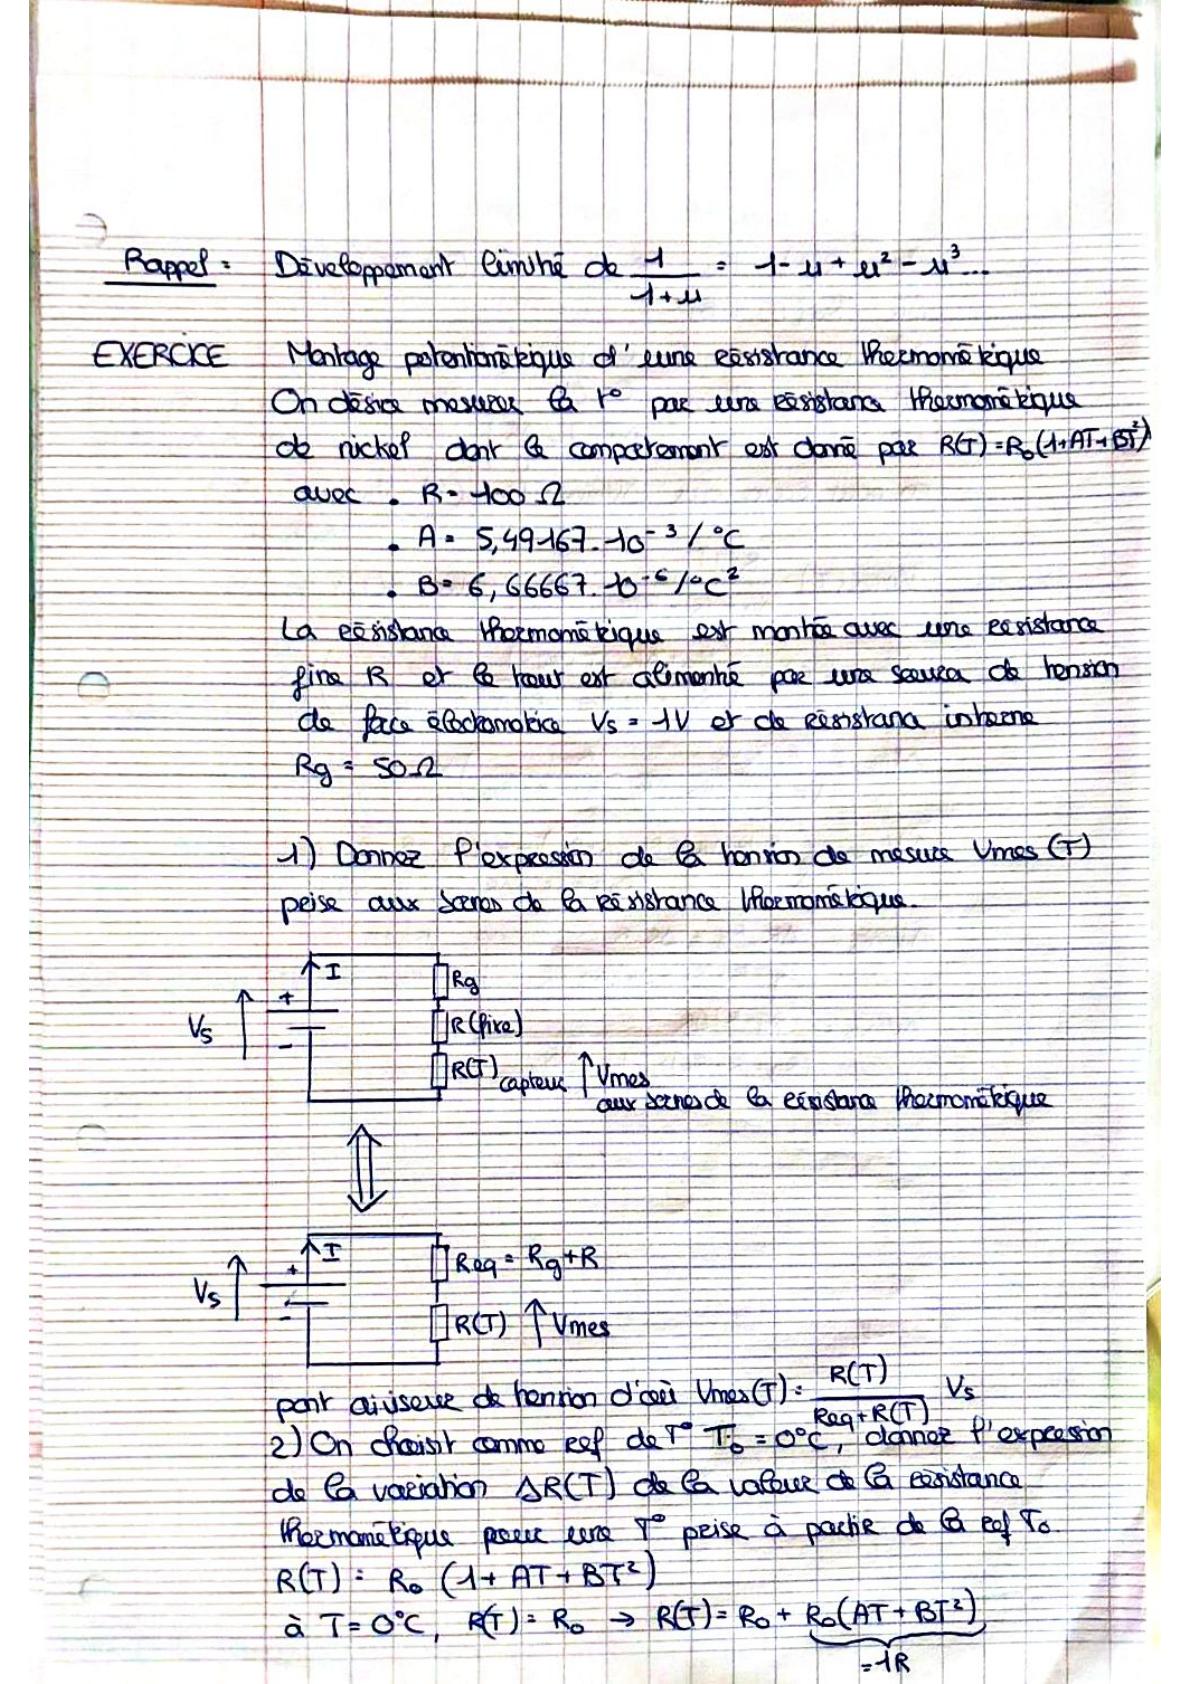 Rappel : Développement limité de 1/(1+u) = 1 - u + u² - u³...
EXERCICE Montage potentiométrique d'une résistance thermométrique
On désire mesurer la T° par une résistance thermométrique
de nickel dont le comportement est donné par R(T) = R₀(1+AT+BT²)
avec . R = 100 Ω
. A = 5,49167.10⁻³ /°C
. B = 6,66667.10⁻⁶ /°C²
La résistance thermométrique est montée avec une résistance
fixe R et le tout est alimenté par une source de tension
de force électromotrice Vs = 1V et de résistance interne
Rg = 50Ω
1) Donnez l'expression de la tension de mesure Vmes (T)
prise aux bornes de la résistance thermométrique.
I
Rg
+
Vs
R (fixe)
-
R(T) capteur Vmes
aux bornes de la résistance thermométrique
I
+
Req = Rg+R
Vs
-
R(T) Vmes
pont diviseur de tension d'où Vmes(T) = R(T)/(Req+R(T)) Vs
2) On choisit comme ref de T° T₀ = 0°C, donnez l'expression
de la variation ΔR(T) de la valeur de la résistance
thermométrique pour une T° prise à partir de la ref T₀.
R(T) = R₀ (1+ AT + BT²)
à T= 0°C, R(T) = R₀ → R(T) = R₀ + R₀(AT + BT²)
= ΔR